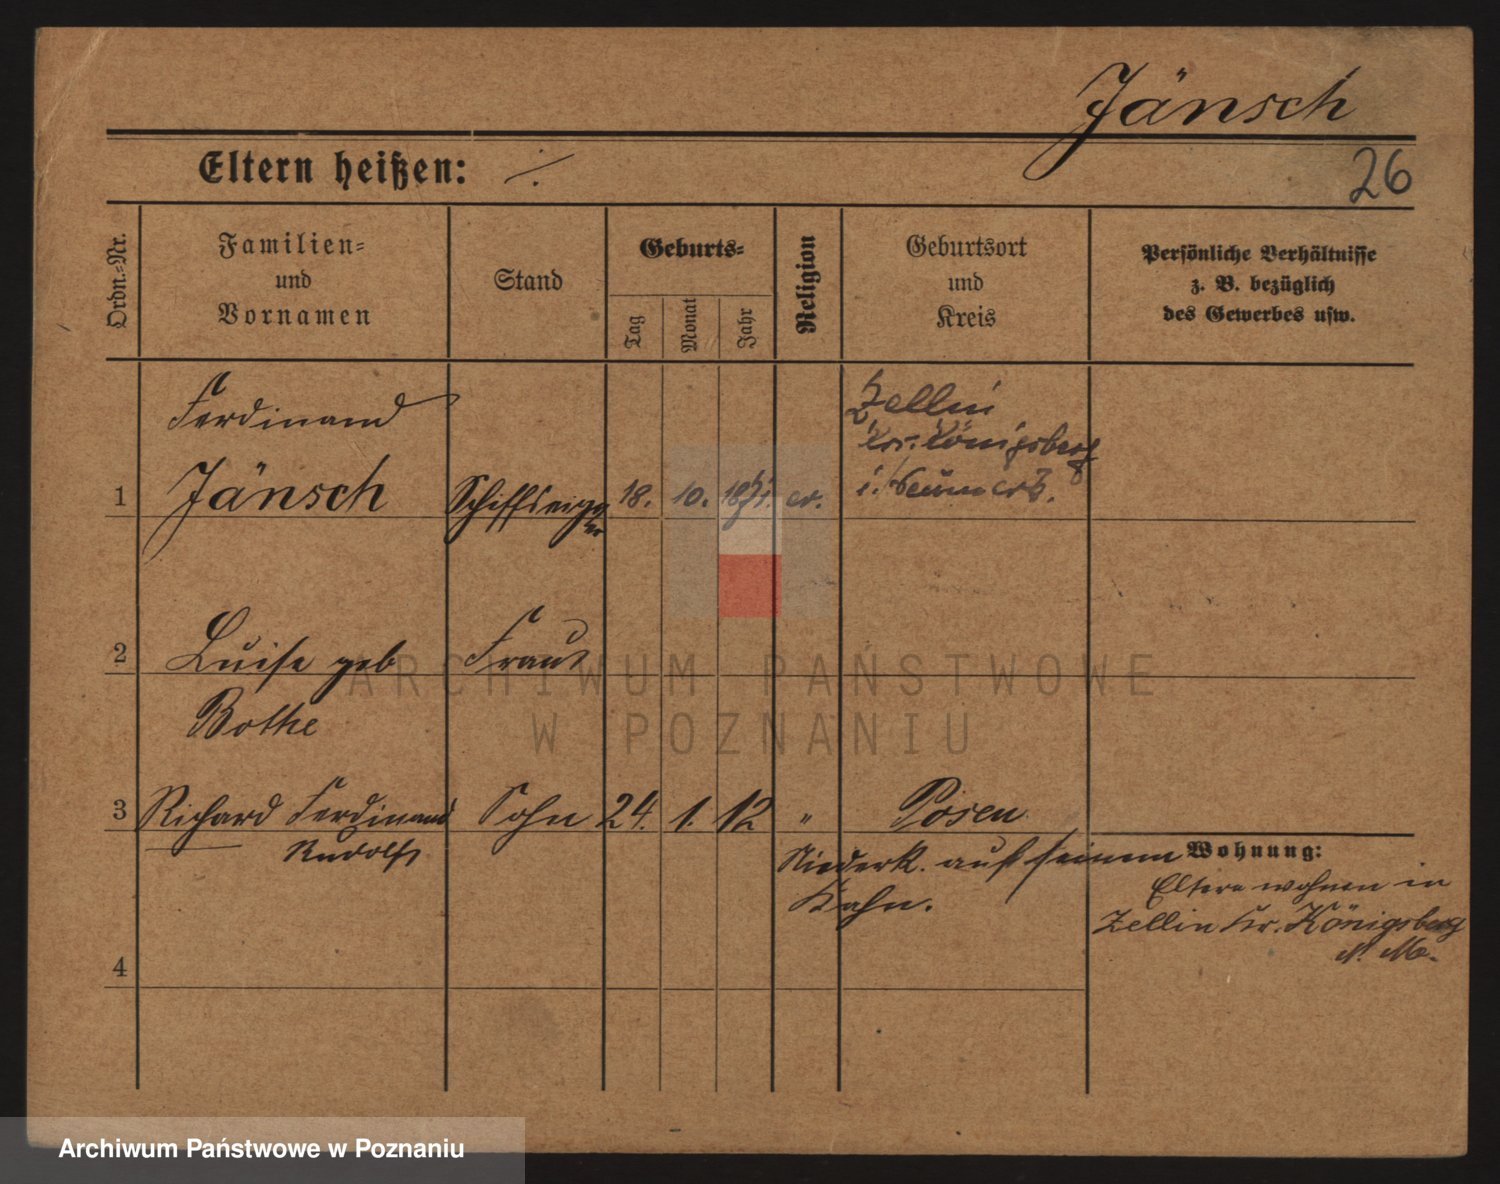 Jänsch
Eltern heißen: ·/.
26
Ordn.-Nr.
Familien-
und
Vornamen
Stand
Geburts-
Tag
Monat
Jahr
Religion
Geburtsort
und
Kreis
Persönliche Verhältnisse
z. B. bezüglich
des Gewerbes usw.
Ferdinand
Zellin
Kr. Königsberg
1 Jänsch Schiffseigner 18. 10. ev. i. Neumark.
2 Luise geb Frau
Bothe
3 Richard Ferdinand Sohn 24. 1. 12 " Posen
Rudolf
Niederk. auf seinem
Kahn.
Wohnung:
Eltern wohnen in
Zellin Kr. Königsberg
N. M.
4
ARCHIWUM PAŃSTWOWE
W POZNANIU
Archiwum Państwowe w Poznaniu